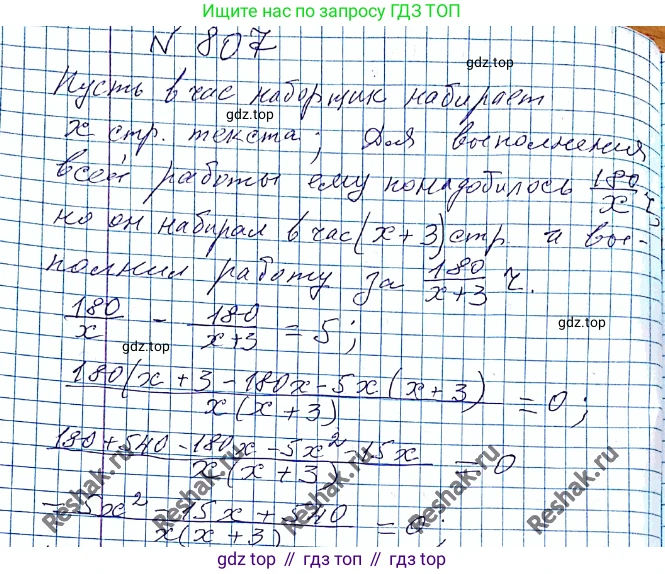 Ищите нас по запросу ГДЗ ТОП
N 807
gdz.top
Пусть в час наборщик набирает
x стр. текста; Для выполнения
gdz.top
всей работы ему понадобилось 180/x ч,
но он набирал в час (x+3) стр. и вы-
gdz.top
полнил работу за 180/(x+3) ч.
180/x - 180/(x+3) = 5;
gdz.top
gdz.top
180(x+3-180x-5x(x+3) / x(x+3) = 0;
180+540-180x-5x²-15x / x(x+3) = 0
-5x²-15x+540 / x(x+3) = 0;
Reshak.ru
Reshak.ru
Reshak.ru
Reshak.ru
gdz.top // гдз.топ // гдз.top